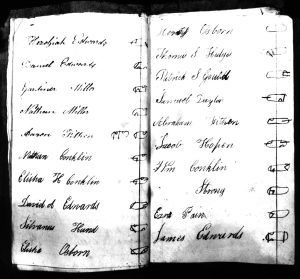 Hezekiah Edwards
Daniel Edwards
Gardiner Miller
Nathan Miller
Aaron Fithen
Nathan Conklin
Elisha H Conklin
David d Edwards
Silvanus Hand
Elisha Osborn
Henry Osborn
Thomas S Hedges
Patrick S Gould
Samuel Taylor
Abraham Fithen
Jacob Hopen
Wm Conklin
Strong
Ezra
James Edwards